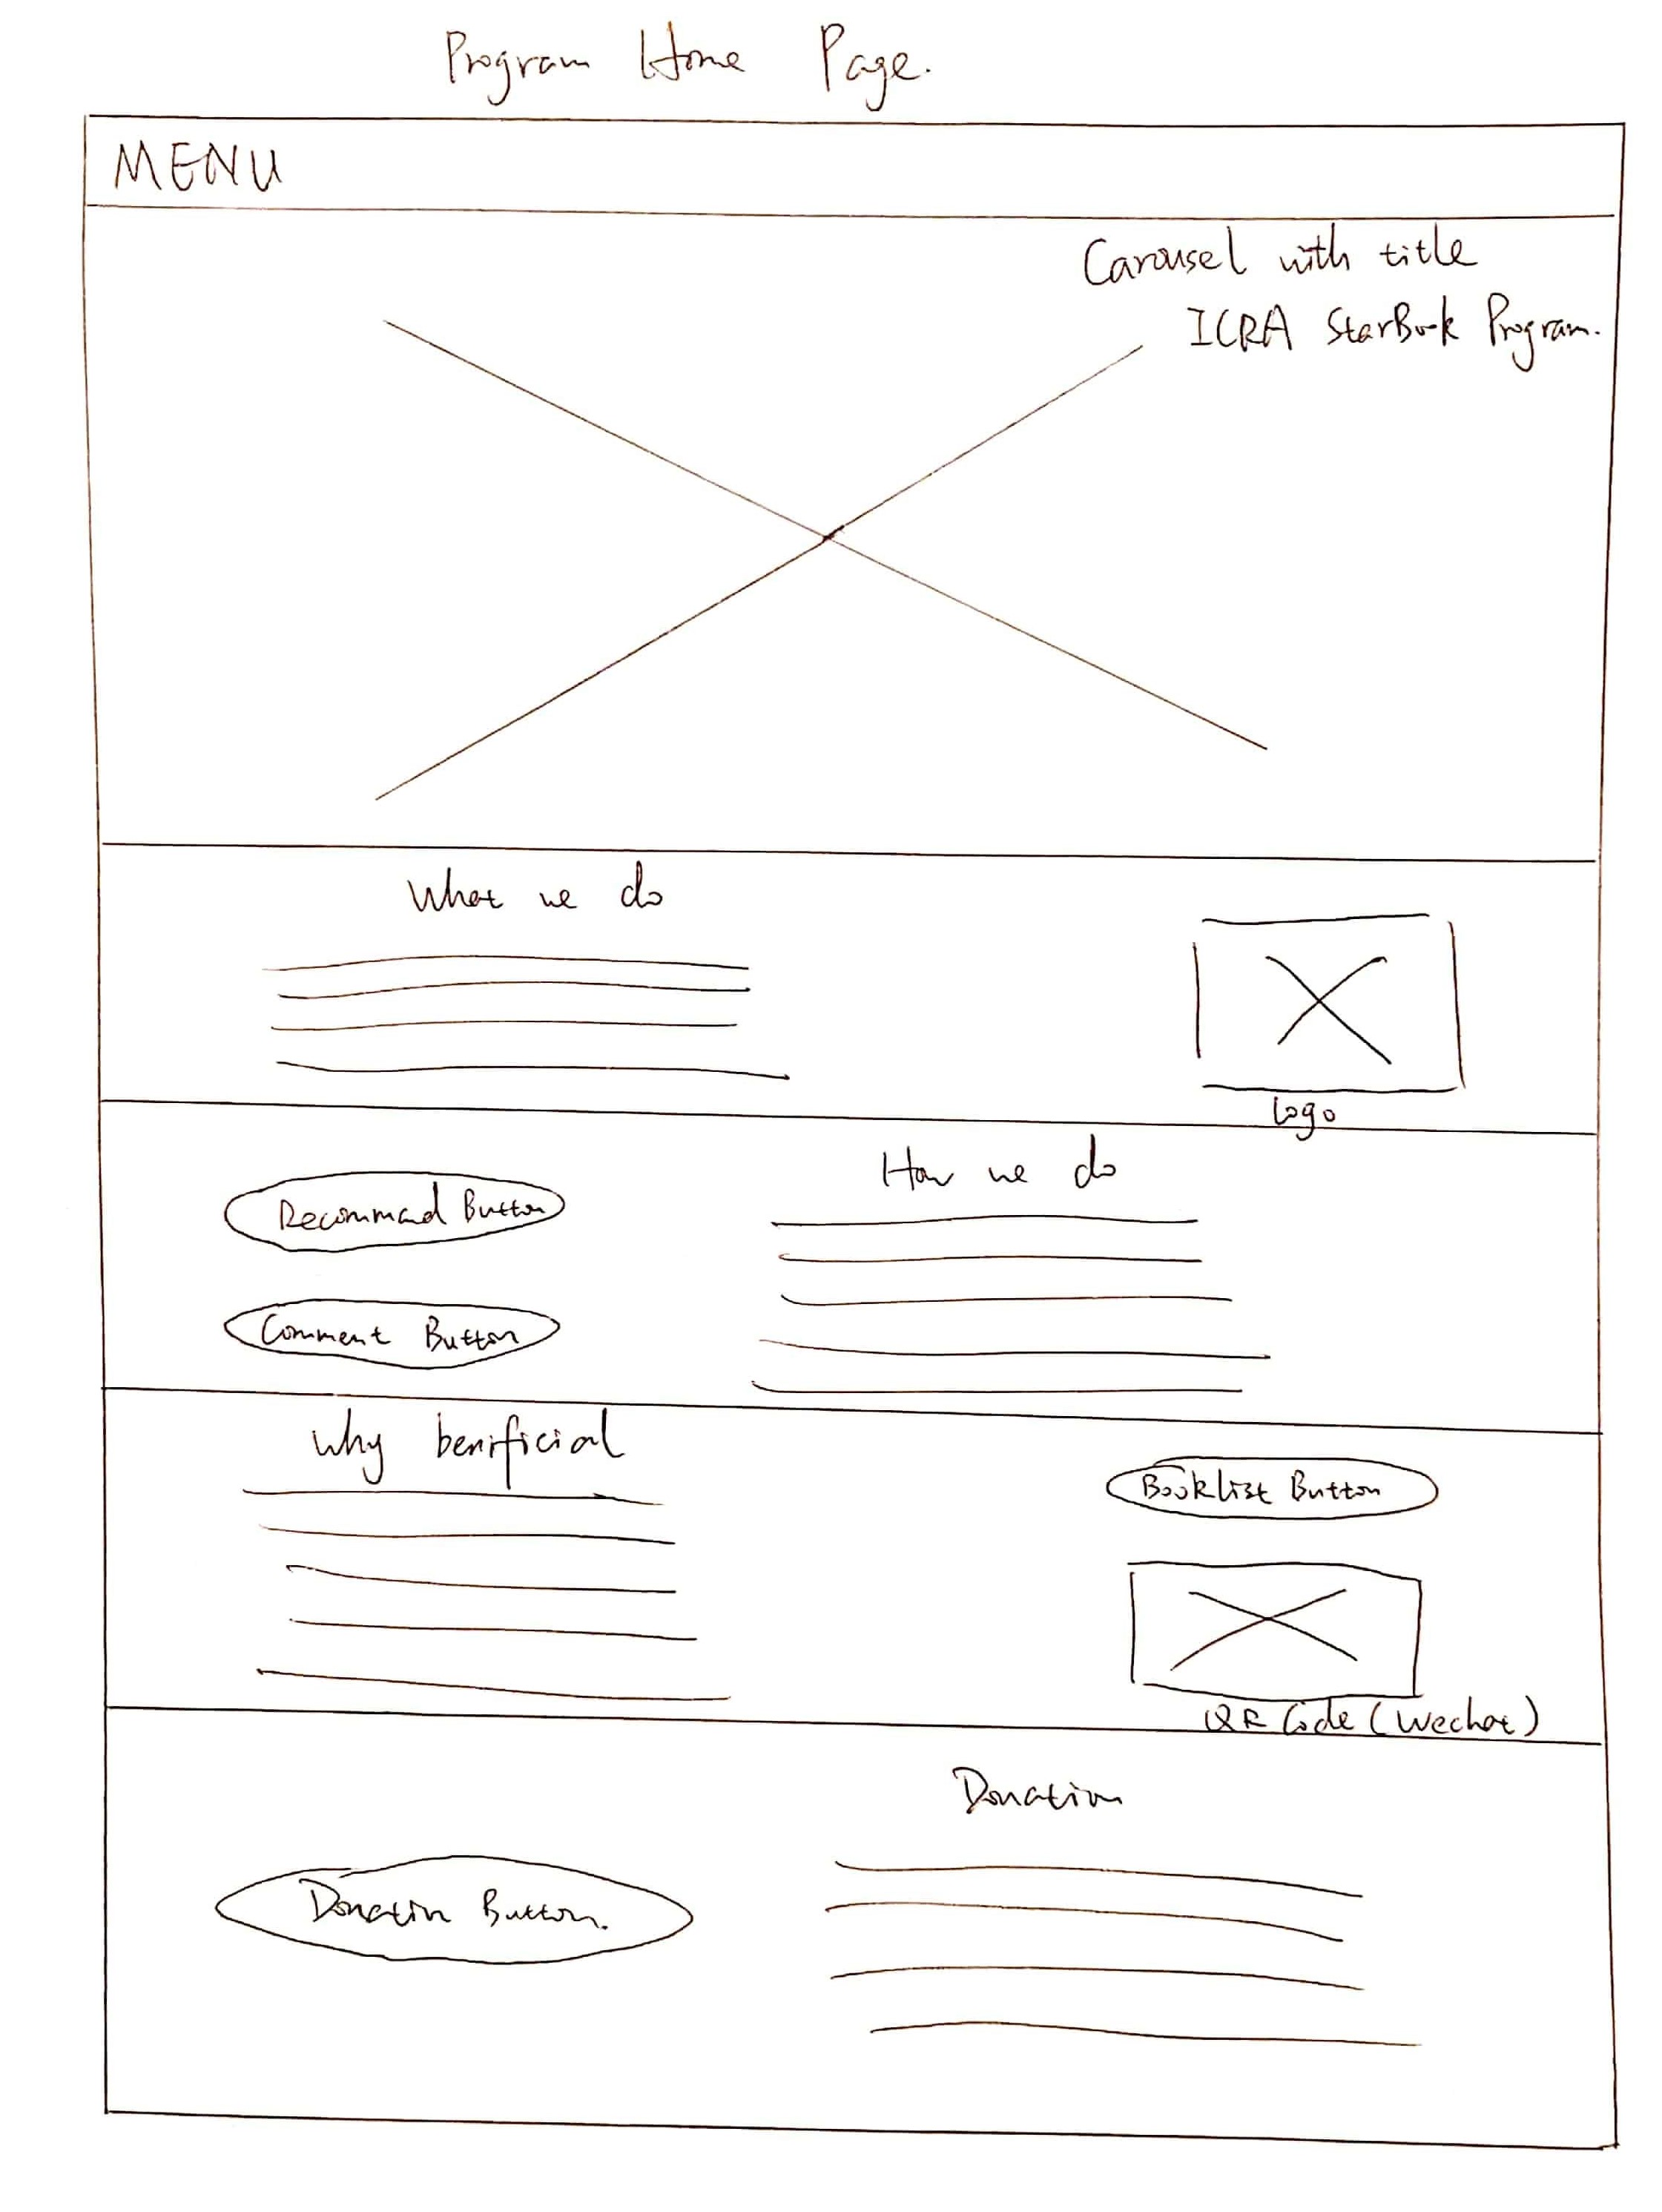 Program Home Page.
MENU
Carousel with title
ICRA StarBook Program.
What we do
Logo
How we do
Recommand Button
Comment Button
why benificial
Booklist Button
QR Code (Wechat)
Donation
Donation Button.